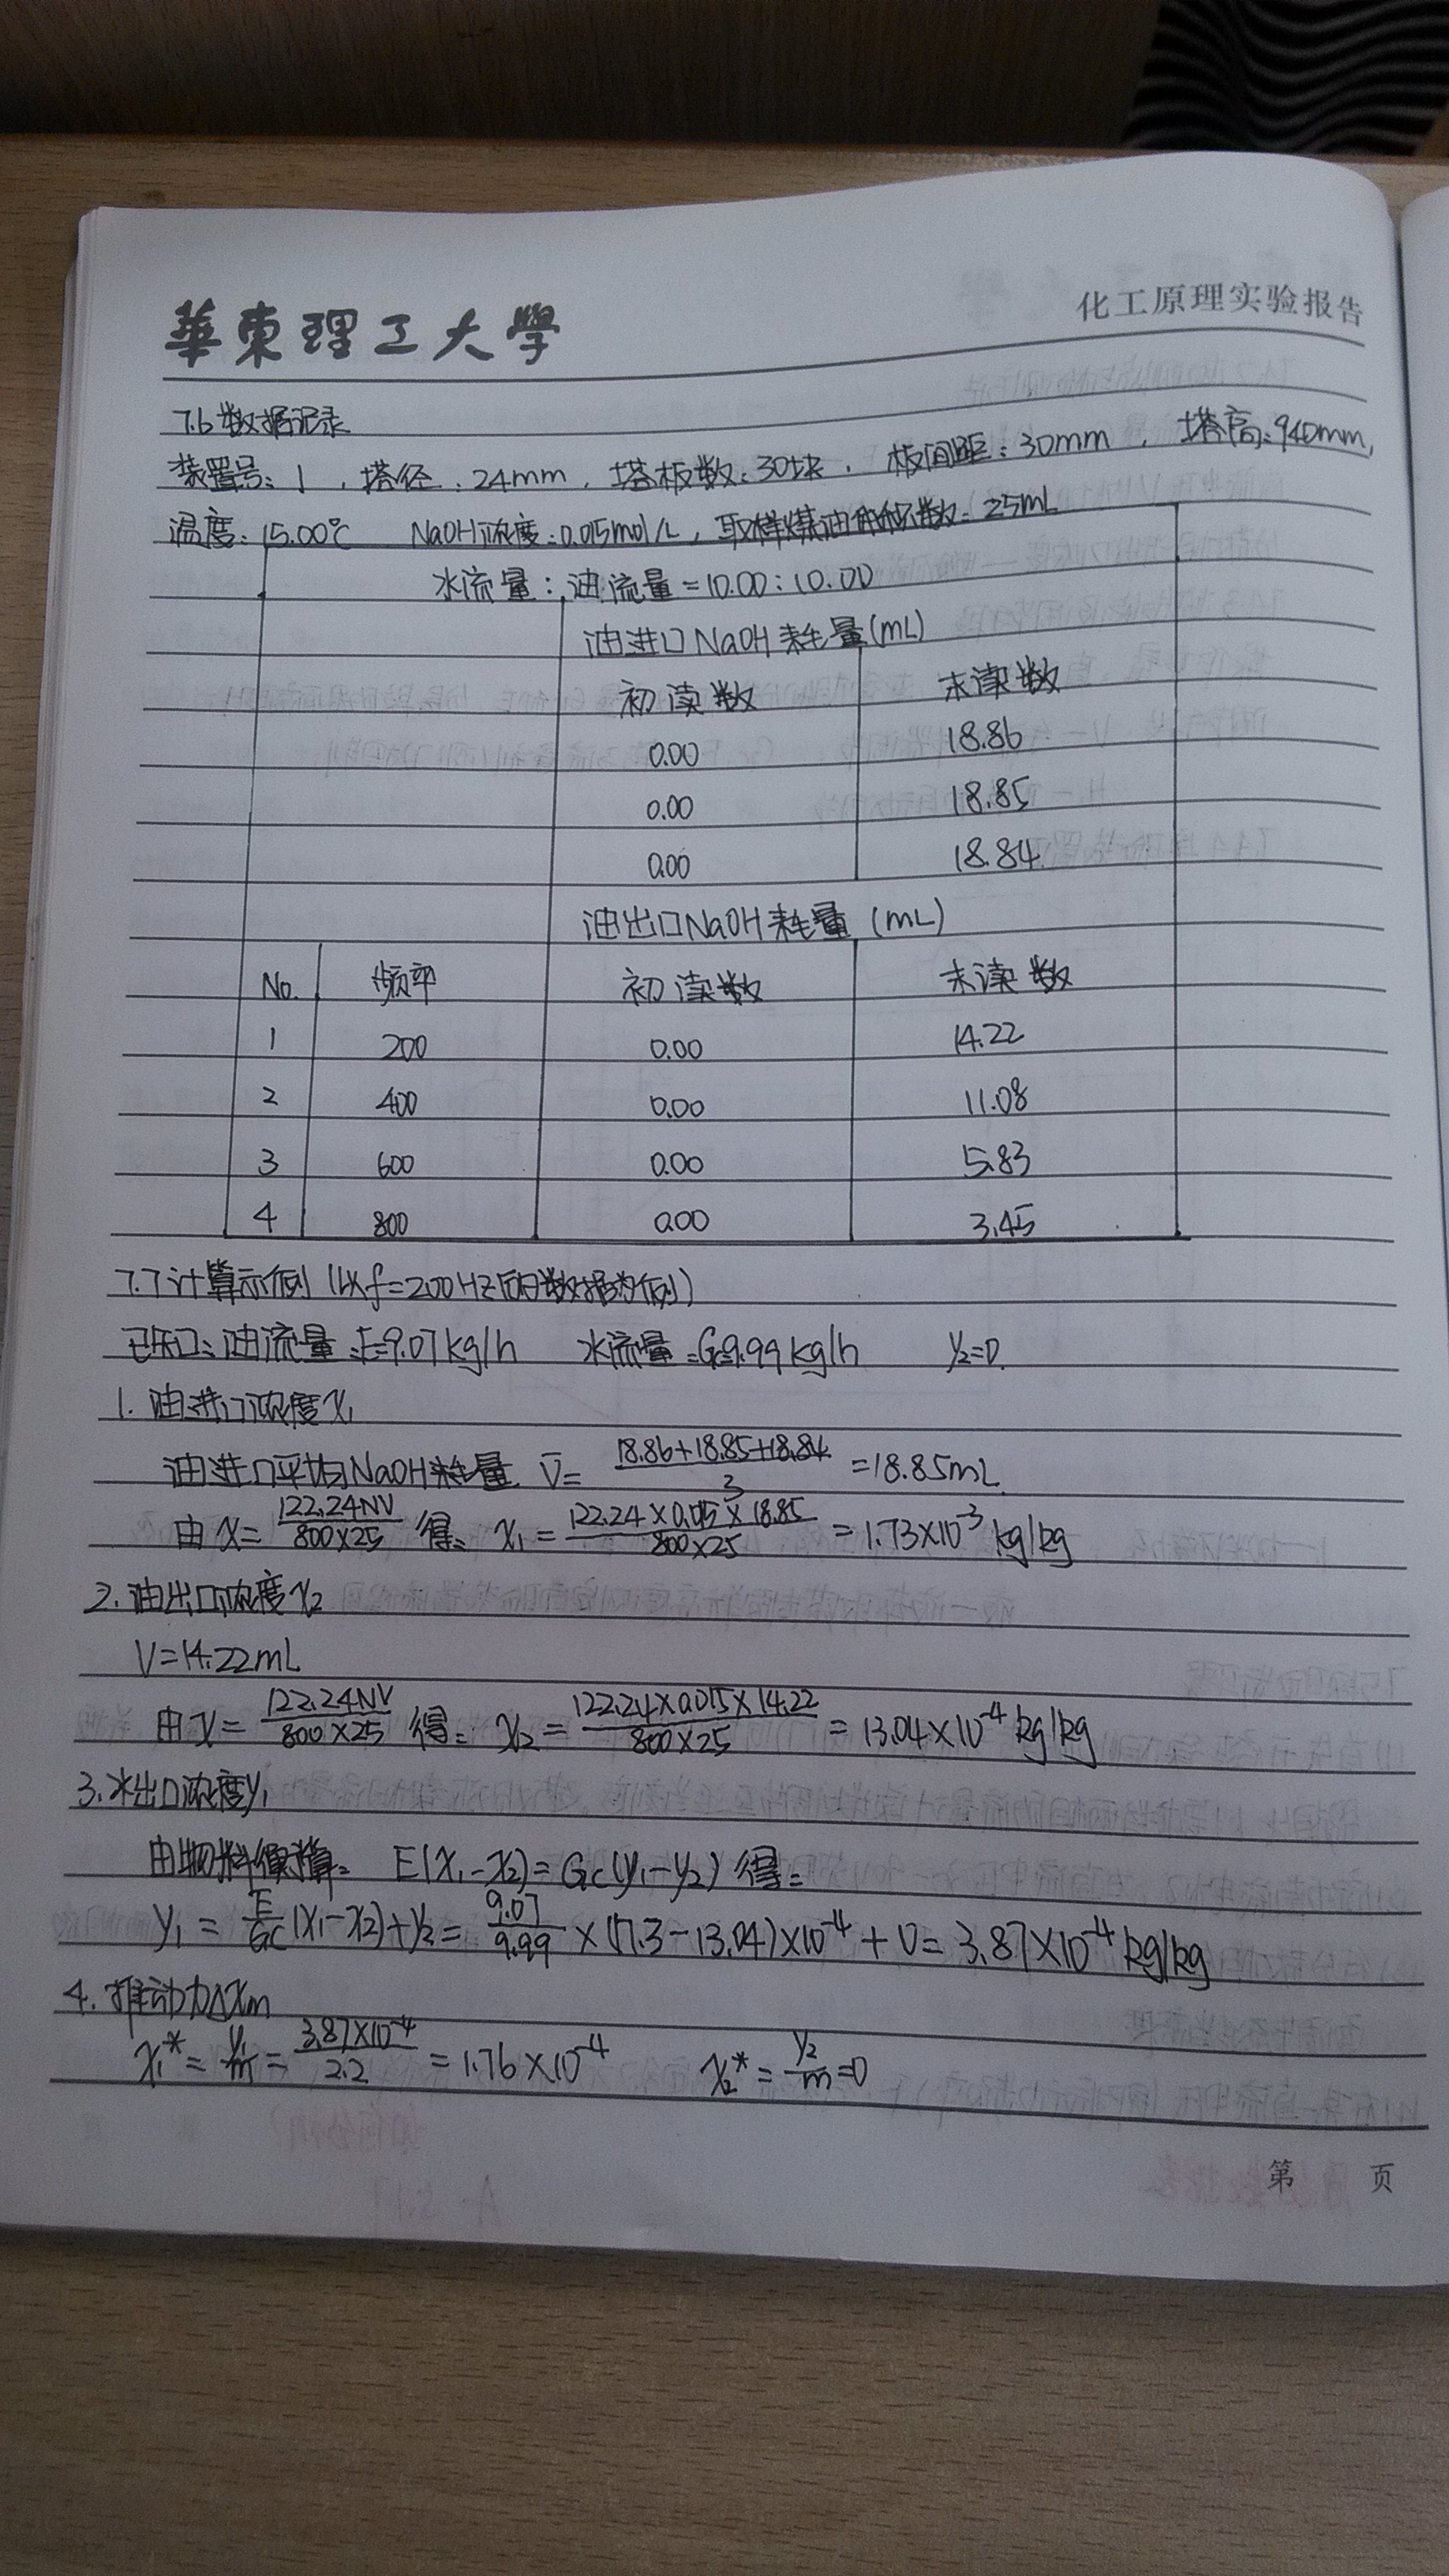 華東理工大學
化工原理实验报告
7.6 数据记录
装置号:1,塔径:24mm,塔板数:30块,板间距:30mm,塔高:940mm,
温度:15.00℃ NaOH浓度:0.015mol/L,取样煤油体积数:25mL
水流量:油流量=10.00:10.00
油进口NaOH耗量(mL)
初读数 末读数
0.00 18.86
0.00 18.85
0.00 18.84
油出口NaOH耗量 (mL)
No. 频率 初读数 末读数
1 200 0.00 14.22
2 400 0.00 11.08
3 600 0.00 5.83
4 800 0.00 3.45
7.7 计算示例 (以f=200Hz时的数据为例)
已知:油流量:E=9.07kg/h 水流量:Gc=9.99kg/h y₂=0.
1. 油进口浓度x₁
油进口平均NaOH耗量 V̄=(18.86+18.85+18.84)/3=18.85mL
由x=122.24NV/(800×25) 得: x₁=122.24×0.015×18.85/(800×25)=1.73×10⁻³kg/kg
2. 油出口浓度x₂
V=14.22mL
由x=122.24NV/(800×25) 得: x₂=122.24×0.015×14.22/(800×25)=13.04×10⁻⁴kg/kg
3. 水出口浓度y₁
由物料衡算: E(x₁-x₂)=Gc(y₁-y₂) 得:
y₁=E/Gc(x₁-x₂)+y₂=9.07/9.99×(17.3-13.04)×10⁻⁴+0=3.87×10⁻⁴kg/kg
4. 推动力Δxm
x₁*=y₁/m=3.87×10⁻⁴/2.2=1.76×10⁻⁴ x₂*=y₂/m=0
第 页